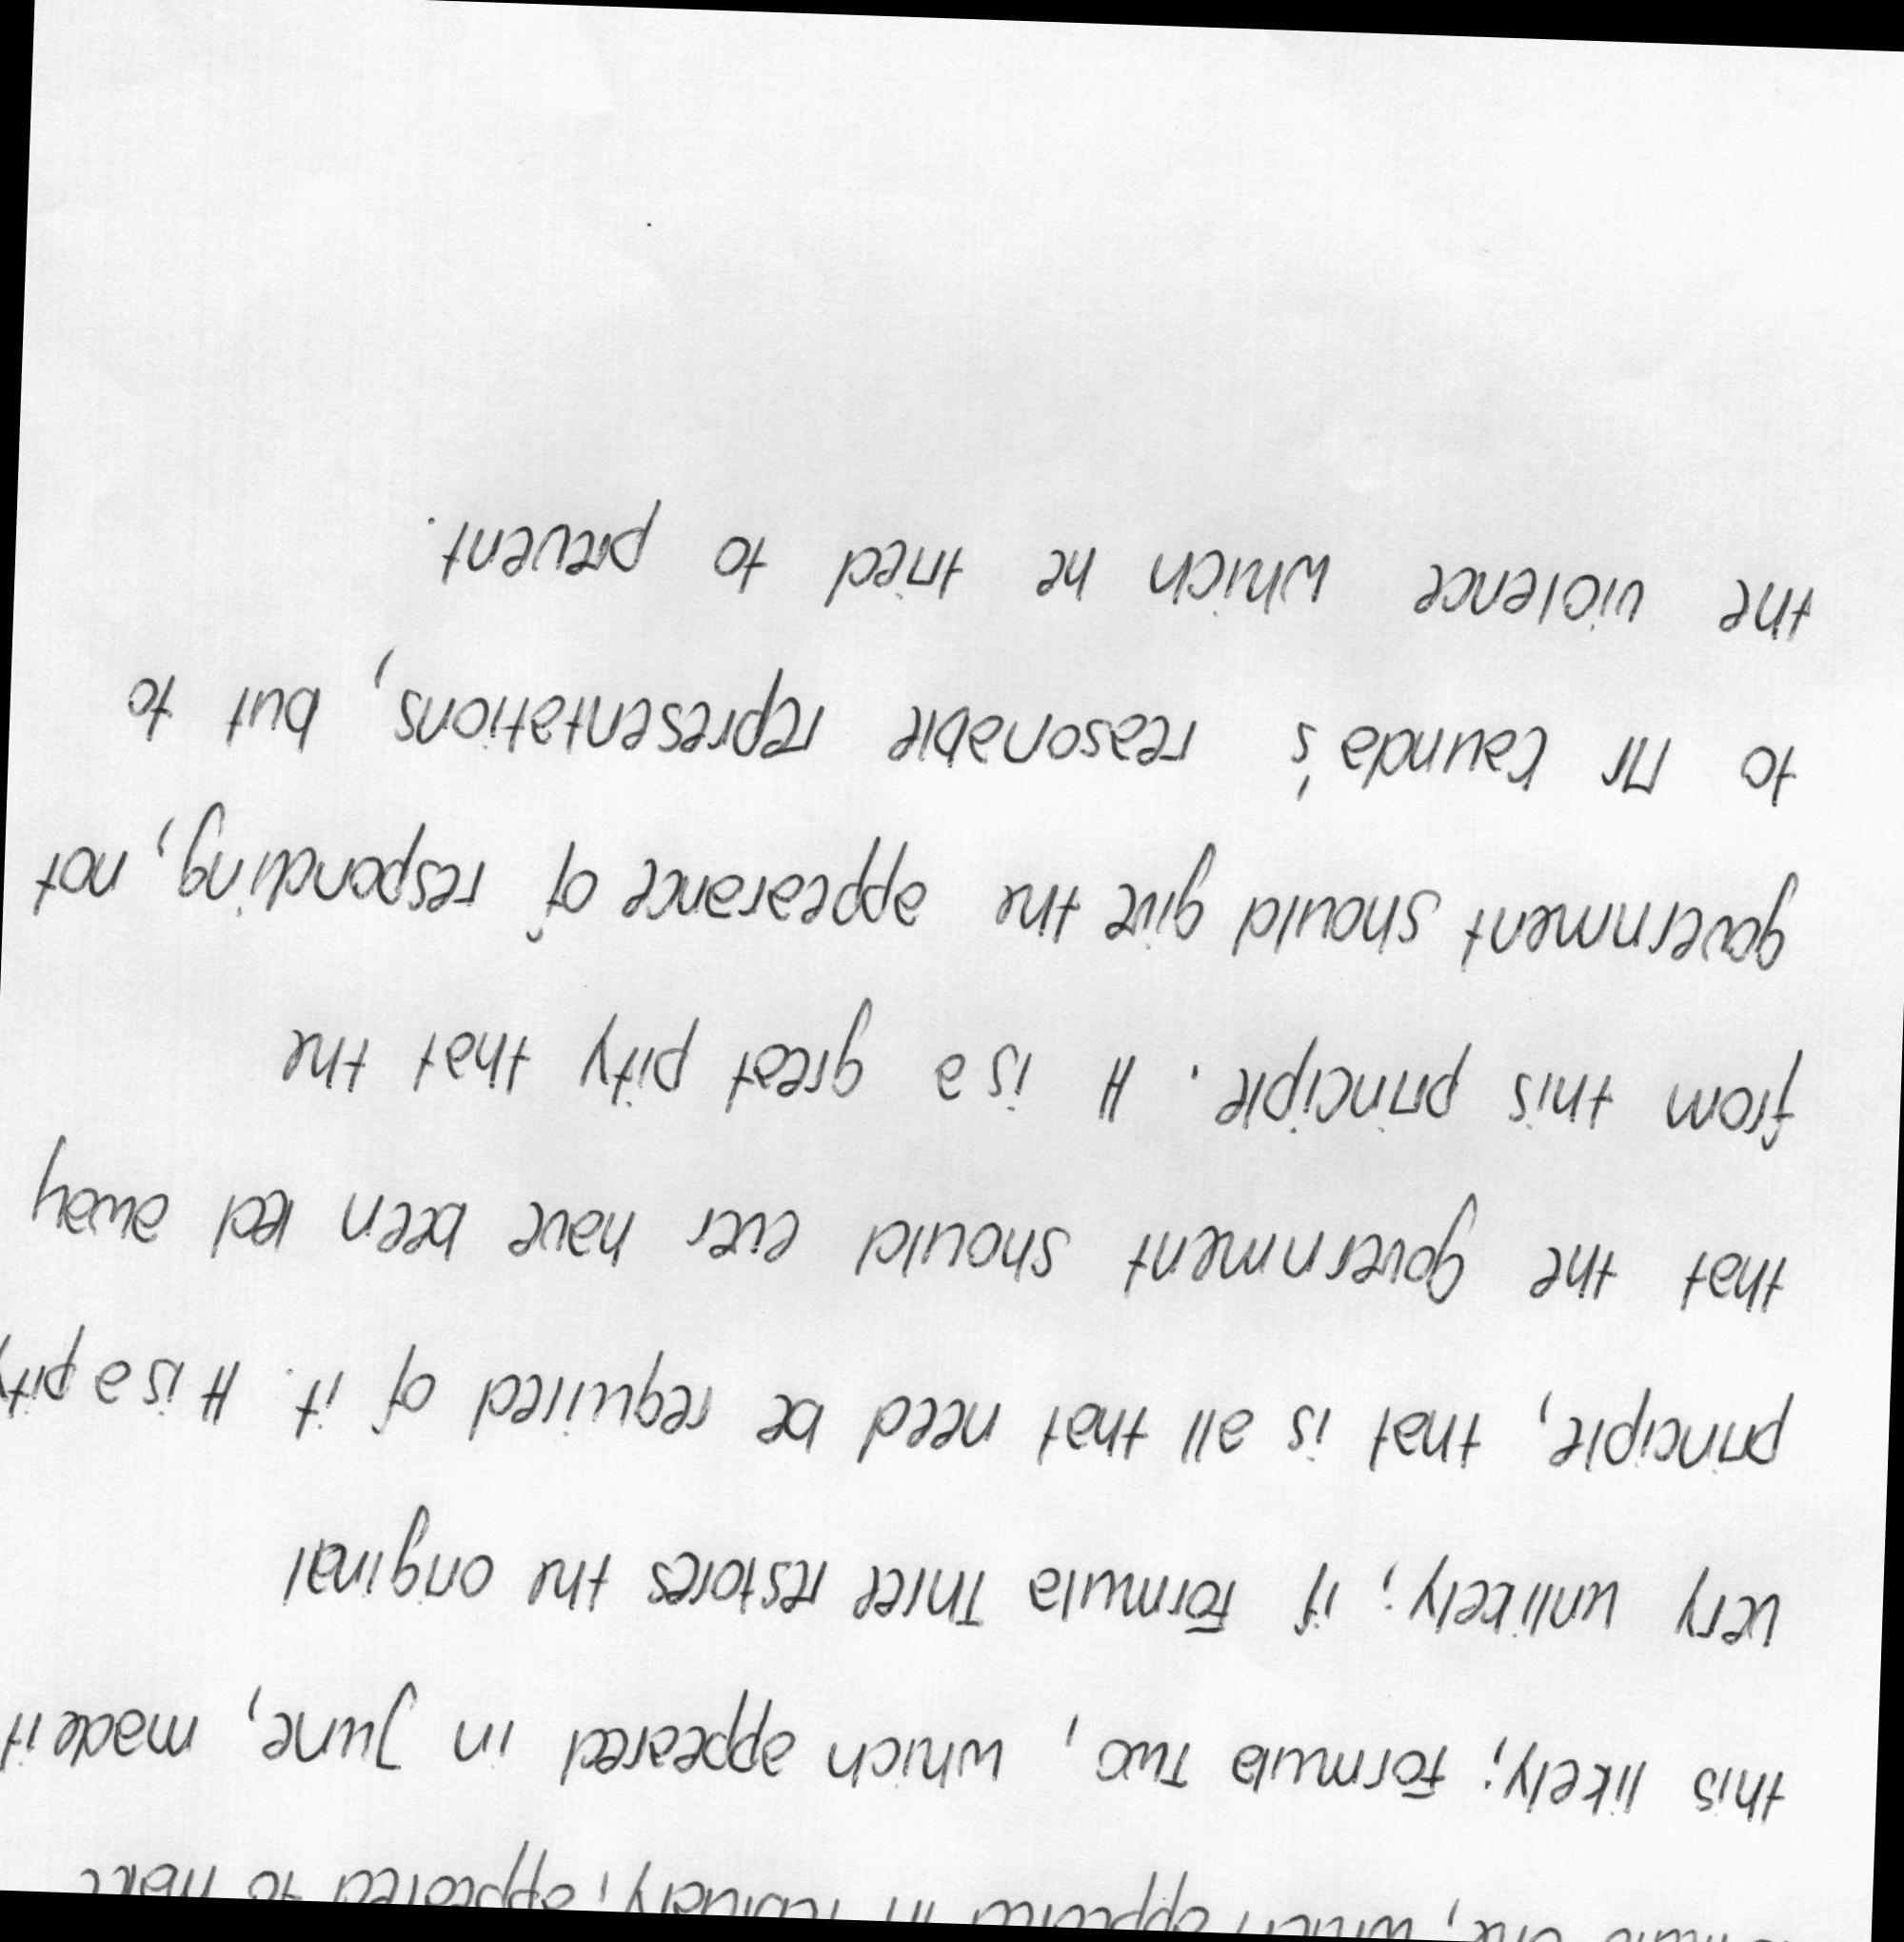 one, which appeared in February, appeared to make
this likely; Formula Two, which appeared in June, made it
very unlikely; if Formula Three restores the original
principle, that is all that need be required of it. It is a pity
that the government should ever have been led away
from this principle. It is a great pity that the
government should give the appearance of responding, not
to Mr Kaunda's reasonable representations, but to
the violence which he tried to prevent.